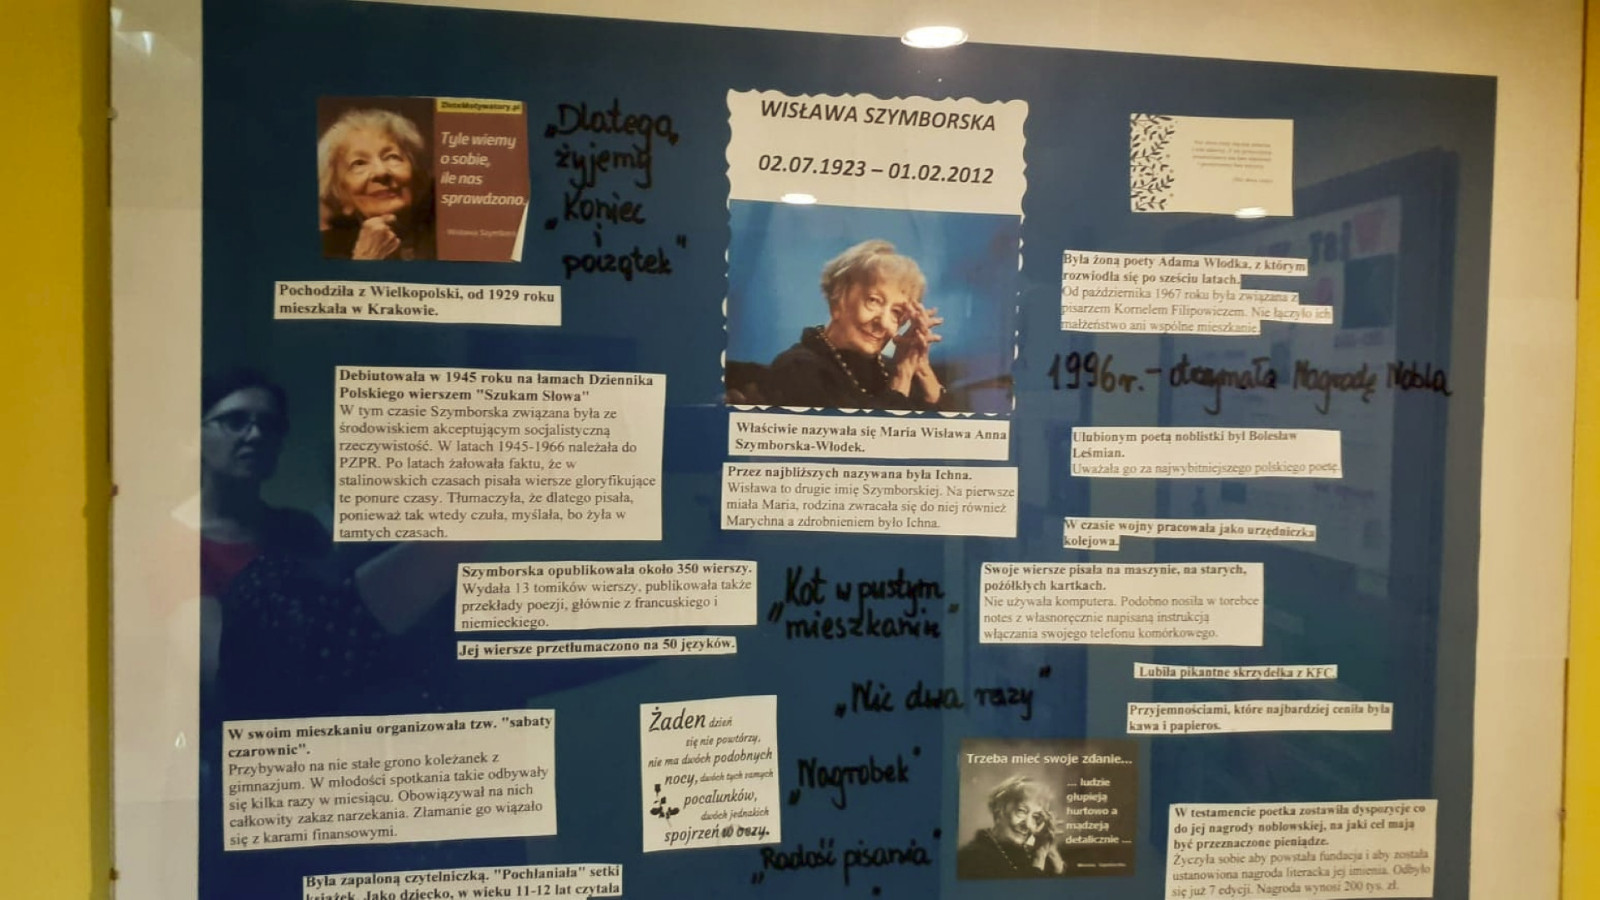 ZloteMotywatory.pl
Tyle wiemy
o sobie,
ile nas
sprawdzono.
Wisława Szymbors
„Dlatego
żyjemy"
„Koniec
i
początek"
WISŁAWA SZYMBORSKA
02.07.1923 – 01.02.2012
Pochodziła z Wielkopolski, od 1929 roku
mieszkała w Krakowie.
Była żoną poety Adama Włodka, z którym
rozwiodła się po sześciu latach.
Od października 1967 roku była związana z
pisarzem Kornelem Filipowiczem. Nie łączyło ich
małżeństwo ani wspólne mieszkanie.
1996 r. - otrzymała Nagrodę Nobla
Debiutowała w 1945 roku na łamach Dziennika
Polskiego wierszem "Szukam Słowa"
W tym czasie Szymborska związana była ze
środowiskiem akceptującym socjalistyczną
rzeczywistość. W latach 1945-1966 należała do
PZPR. Po latach żałowała faktu, że w
stalinowskich czasach pisała wiersze gloryfikujące
te ponure czasy. Tłumaczyła, że dlatego pisała,
ponieważ tak wtedy czuła, myślała, bo żyła w
tamtych czasach.
Właściwie nazywała się Maria Wisława Anna
Szymborska-Włodek.
Przez najbliższych nazywana była Ichna.
Wisława to drugie imię Szymborskiej. Na pierwsze
miała Maria, rodzina zwracała się do niej również
Marychna a zdrobnieniem było Ichna.
Ulubionym poetą noblistki był Bolesław
Leśmian.
Uważała go za najwybitniejszego polskiego poetę.
W czasie wojny pracowała jako urzędniczka
kolejowa.
Szymborska opublikowała około 350 wierszy.
Wydała 13 tomików wierszy, publikowała także
przekłady poezji, głównie z francuskiego i
niemieckiego.
Jej wiersze przetłumaczono na 50 języków.
„Kot w pustym
mieszkaniu"
Swoje wiersze pisała na maszynie, na starych,
pożółkłych kartkach.
Nie używała komputera. Podobno nosiła w torebce
notes z własnoręcznie napisaną instrukcją
włączania swojego telefonu komórkowego.
Lubiła pikantne skrzydełka z KFC.
„Nic dwa razy"
Przyjemnościami, które najbardziej ceniła była
kawa i papieros.
W swoim mieszkaniu organizowała tzw. "sabaty
czarownic".
Przybywało na nie stałe grono koleżanek z
gimnazjum. W młodości spotkania takie odbywały
się kilka razy w miesiącu. Obowiązywał na nich
całkowity zakaz narzekania. Złamanie go wiązało
się z karami finansowymi.
Żaden dzień
się nie powtórzy,
nie ma dwóch podobnych
nocy, dwóch tych samych
pocałunków,
dwóch jednakich
spojrzeń w oczy.
„Nagrobek"
„Radość pisania"
Trzeba mieć swoje zdanie...
... ludzie
głupieją
hurtowo a
mądrzeją
detalicznie ...
W testamencie poetka zostawiła dyspozycje co
do jej nagrody noblowskiej, na jaki cel mają
być przeznaczone pieniądze.
Życzyła sobie aby powstała fundacja i aby została
ustanowiona nagroda literacka jej imienia. Odbyło
się już 7 edycji. Nagroda wynosi 200 tys. zł.
Była zapaloną czytelniczką. "Pochłaniała" setki
książek. Jako dziecko, w wieku 11-12 lat czytała